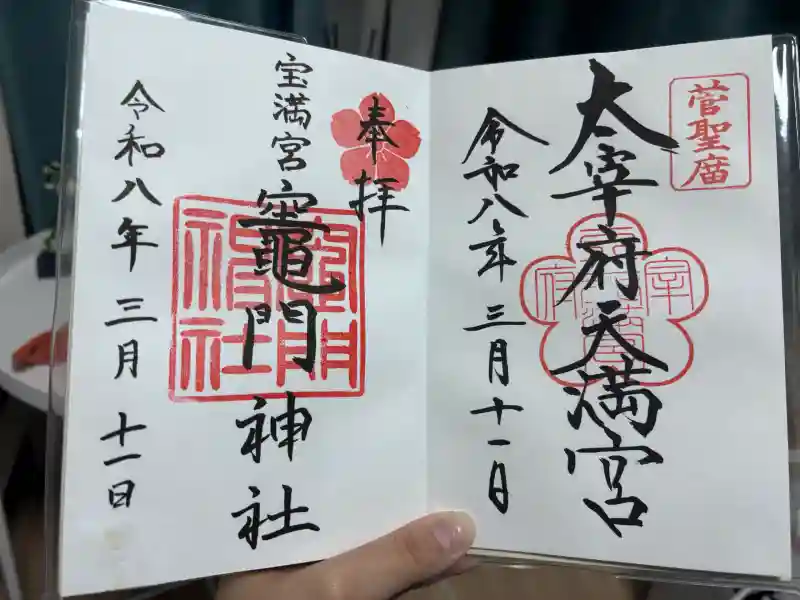 菅聖庿
太宰府天満宮
令和八年 三月十一日
奉拝
宝満宮 竈門神社
竈門神社
令和八年 三月十一日